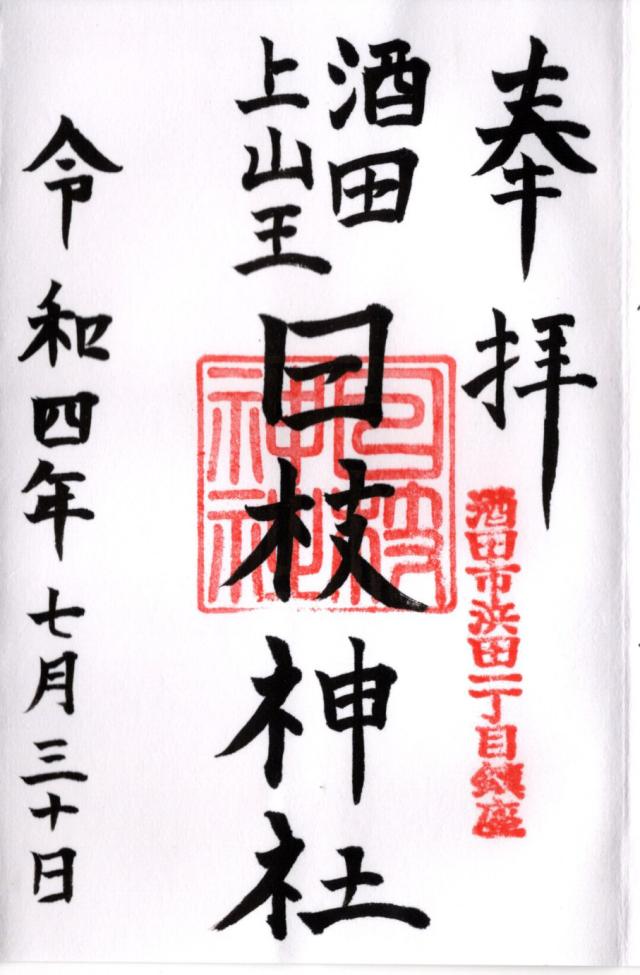 奉拝
酒田市浜田一丁目鎮座
酒田
上山王
日枝神社
日枝
神社
令和四年七月三十日